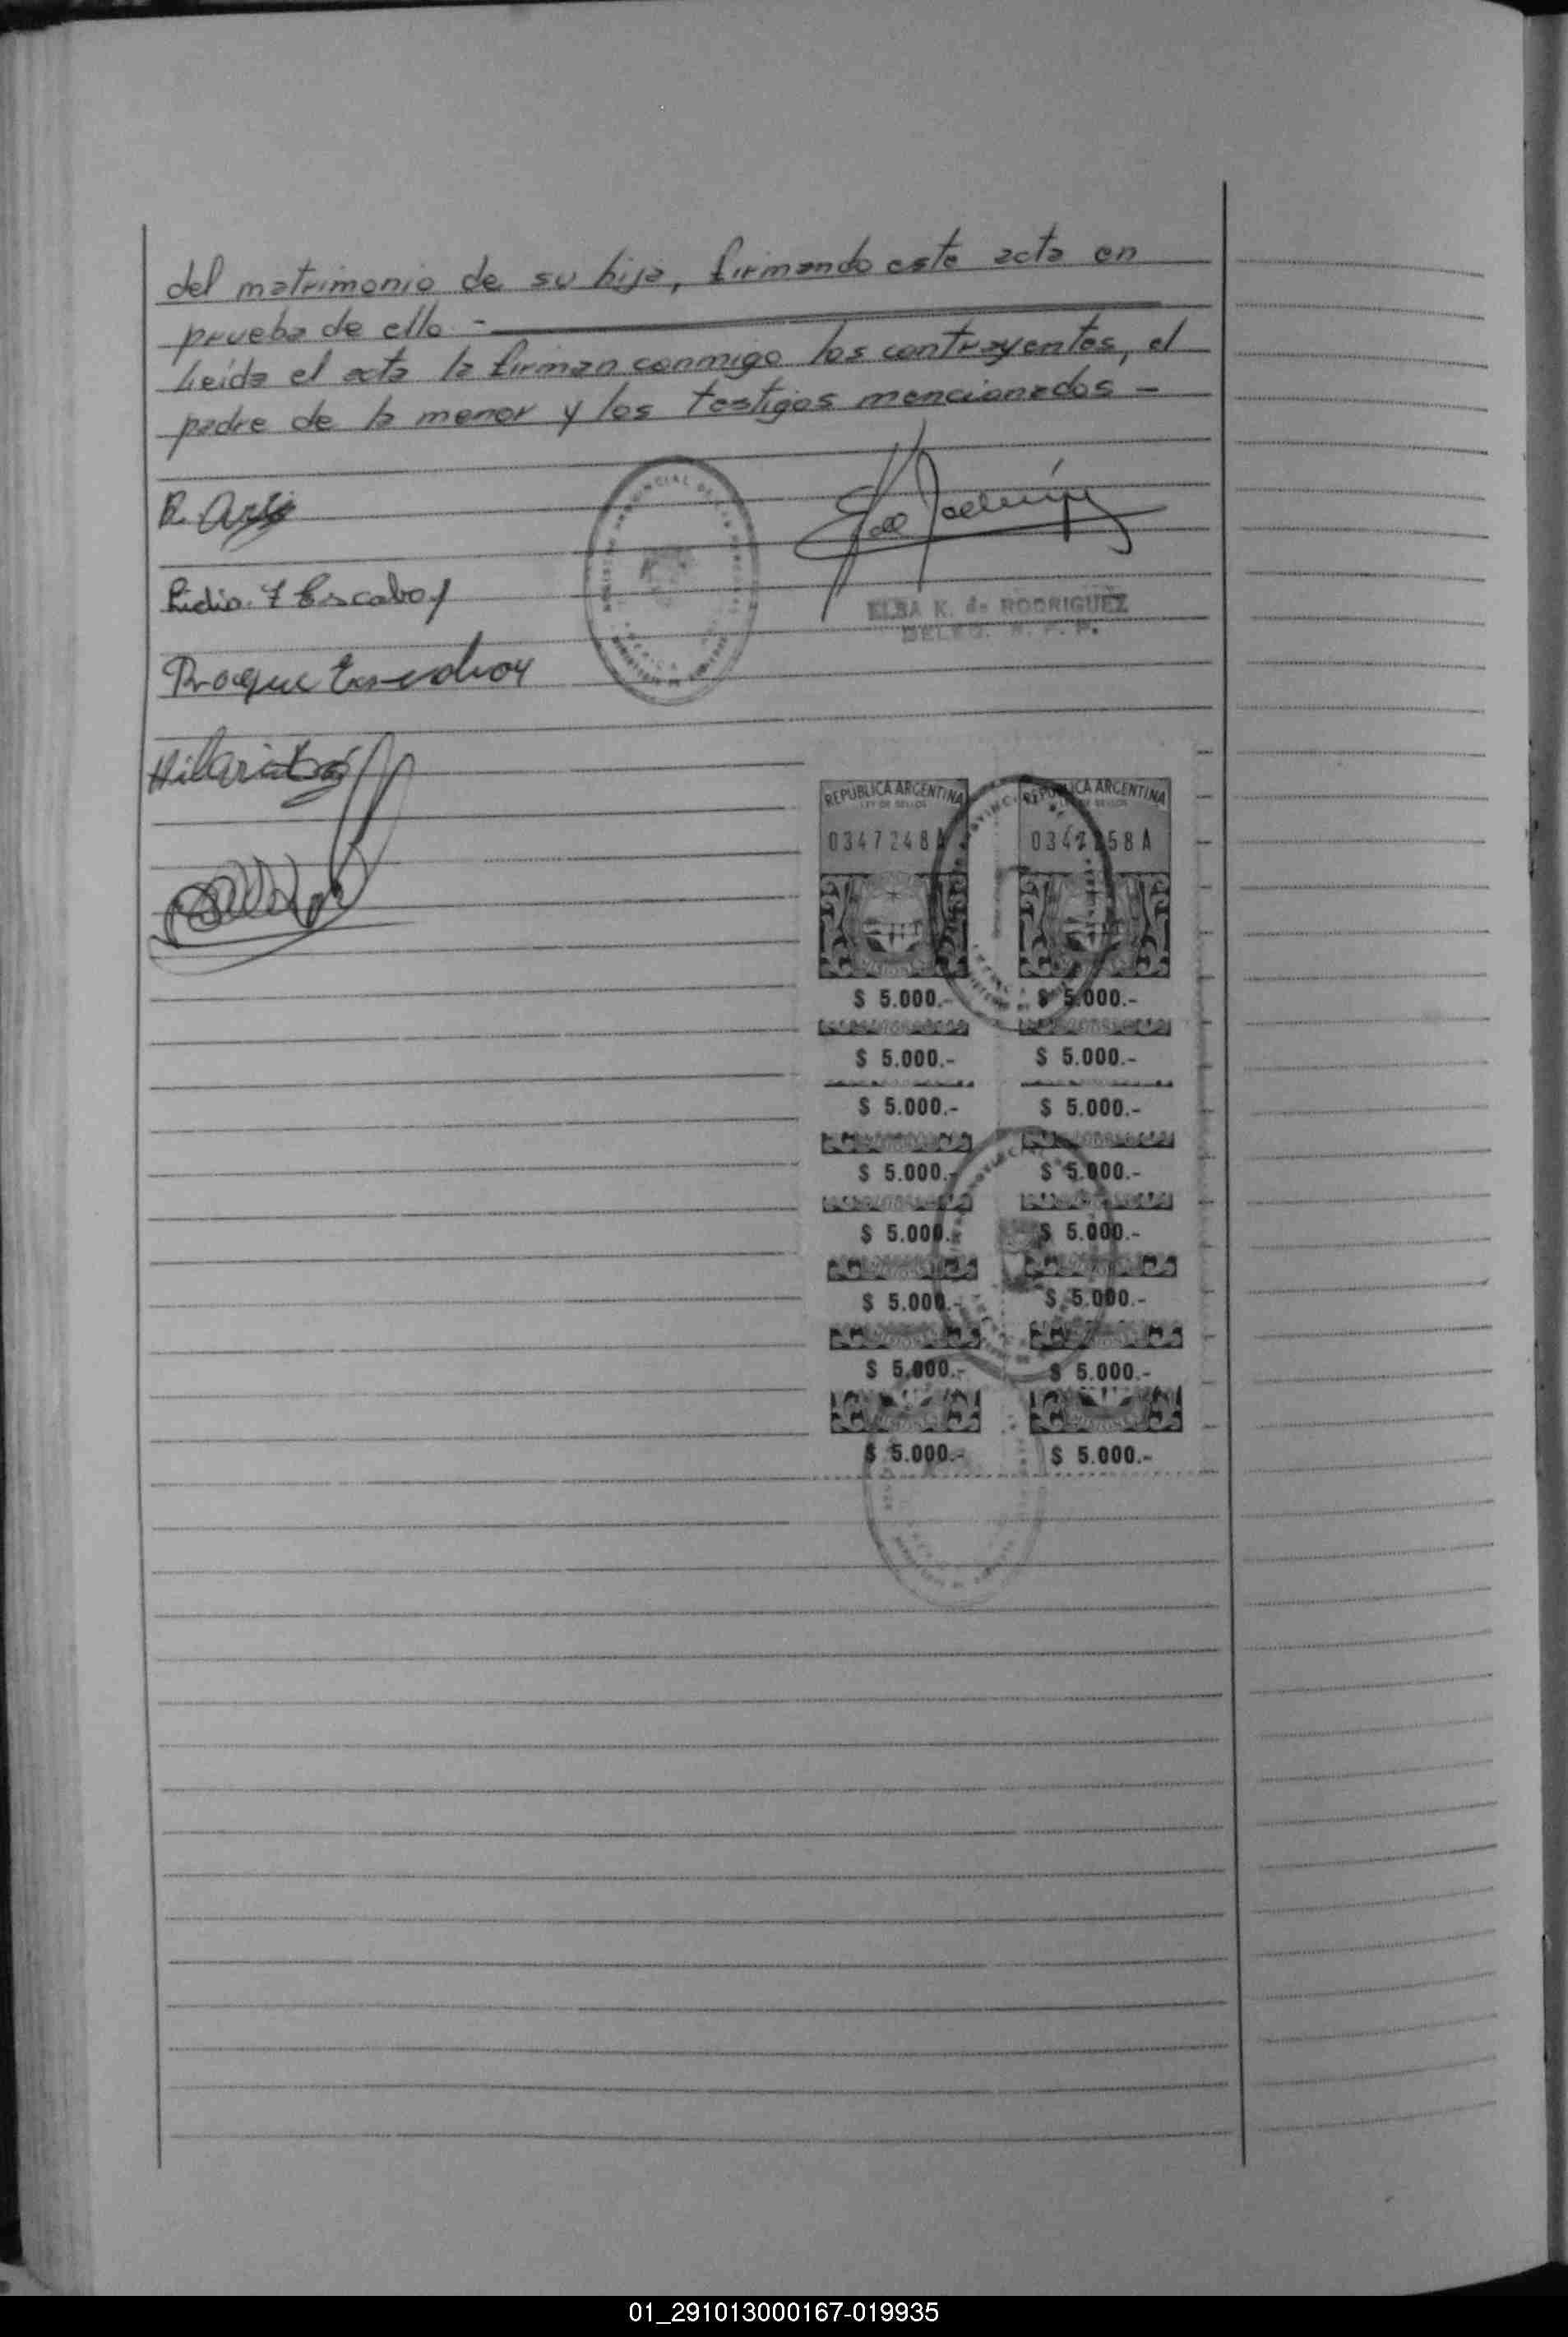 del matrimonio de su hija, firmando este acta en
prueba de ello -
Leída el acta la firman conmigo los contrayentes, el
padre de la menor y los testigos mencionados -
R.
Lidia
Roque
ELBA K. de RODRIGUEZ
REPUBLICA ARGENTINA REPUBLICA ARGENTINA
LEY DE SELLOS
0347248A 58 A
$ 5.000.- $ 5.000.-
$ 5.000.- $ 5.000.-
$ 5.000.- $ 5.000.-
$ 5.000.- $ 5.000.-
$ 5.000.- $ 5.000.-
$ 5.000.- $ 5.000.-
$ 5.000.- $ 5.000.-
$ 5.000.- $ 5.000.-
01_291013000167-019935